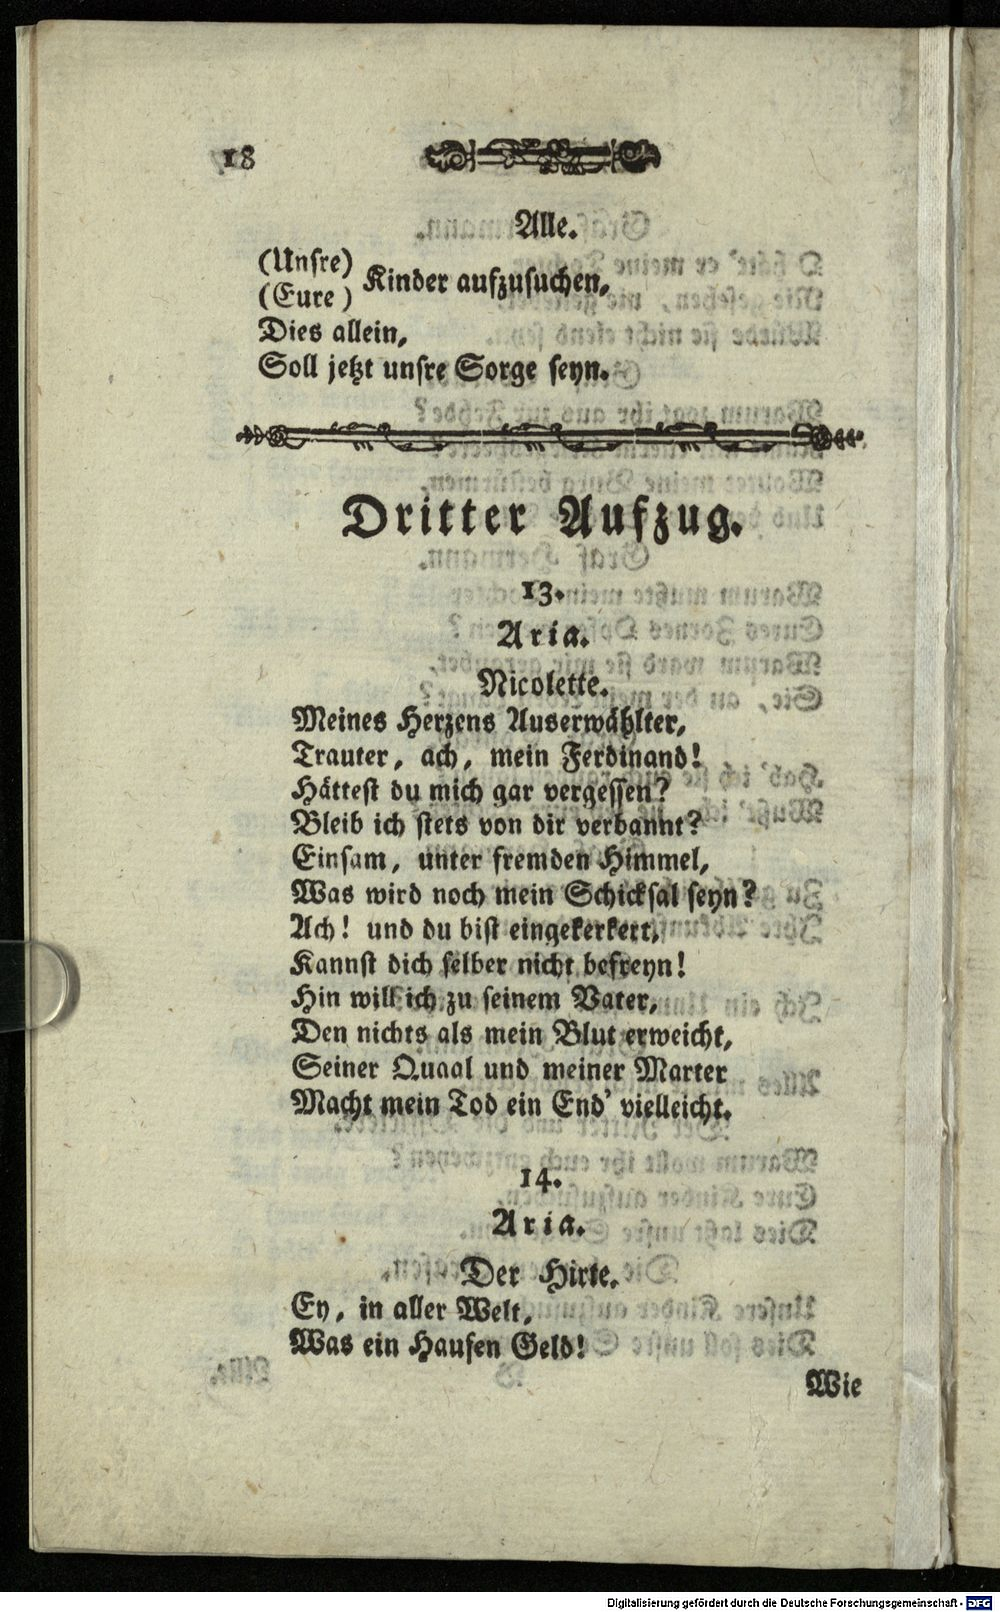 18
Alle.
(Unsre)
(Eure) Kinder aufzusuchen,
Dies allein,
Soll jetzt unsre Sorge seyn.
Dritter Aufzug.
13.
Aria.
Nicolette.
Meines Herzens Auserwählter,
Trauter, ach, mein Ferdinand!
Hättest du mich gar vergessen?
Bleib ich stets von dir verbannt?
Einsam, unter fremden Himmel,
Was wird noch mein Schicksal seyn?
Ach! und du bist eingekerkert,
Kannst dich selber nicht befreyn!
Hin will ich zu seinem Vater,
Den nichts als mein Blut erweicht,
Seiner Quaal und meiner Marter
Macht mein Tod ein End' vielleicht.
14.
Aria.
Der Hirte.
Ey, in aller Welt,
Was ein Haufen Geld!
Wie
Digitalisierung gefördert durch die Deutsche Forschungsgemeinschaft - DFG